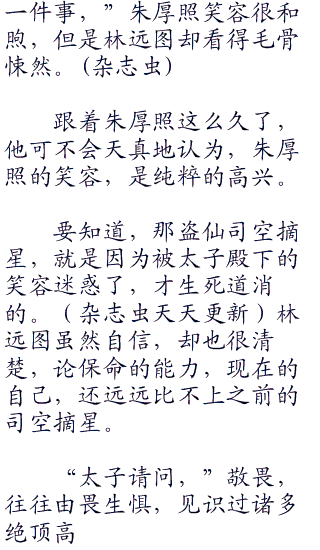 一件事，”朱厚照笑容很和
煦，但是林远图却看得毛骨
悚然。(杂志虫)
跟着朱厚照这么久了，
他可不会天真地认为，朱厚
照的笑容，是纯粹的高兴。
要知道，那盗仙司空摘
星，就是因为被太子殿下的
笑容迷惑了，才生死道消
的。（杂志虫天天更新）林
远图虽然自信，却也很清
楚，论保命的能力，现在的
自己，还远远比不上之前的
司空摘星。
“太子请问，”敬畏，
往往由畏生惧，见识过诸多
绝顶高